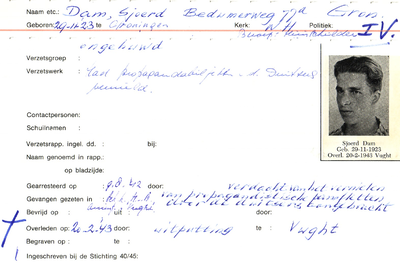 Naam etc.: Dam, Sjoerd Bedumerweg 77a Gron.
Geboren: 29-11-23 te Groningen Kerk: NH Politiek:
Beroep: Huisschilder IV
ongehuwd
Verzetsgroep :
Verzetswerk : v.d. Duitsers
vernield.
Contactpersonen:
Schuilnamen :
Verzetsrapp. ingel. dd. : bij:
Naam genoemd in rapp.:
op bladzijde:
Gearresteerd op : 42 door: verdacht van het vernielen
Gevangen gezeten in: van propagandistische pamfletten
Bevrijd op : uit door door de Duitsers aangebracht
Overleden op : 20-2-43 door: uitputting te : Vught
Begraven op : te :
Ingeschreven bij de Stichting 40/45:
Sjoerd Dam
Geb. 29-11-1923
Overl. 20-2-1943 Vught